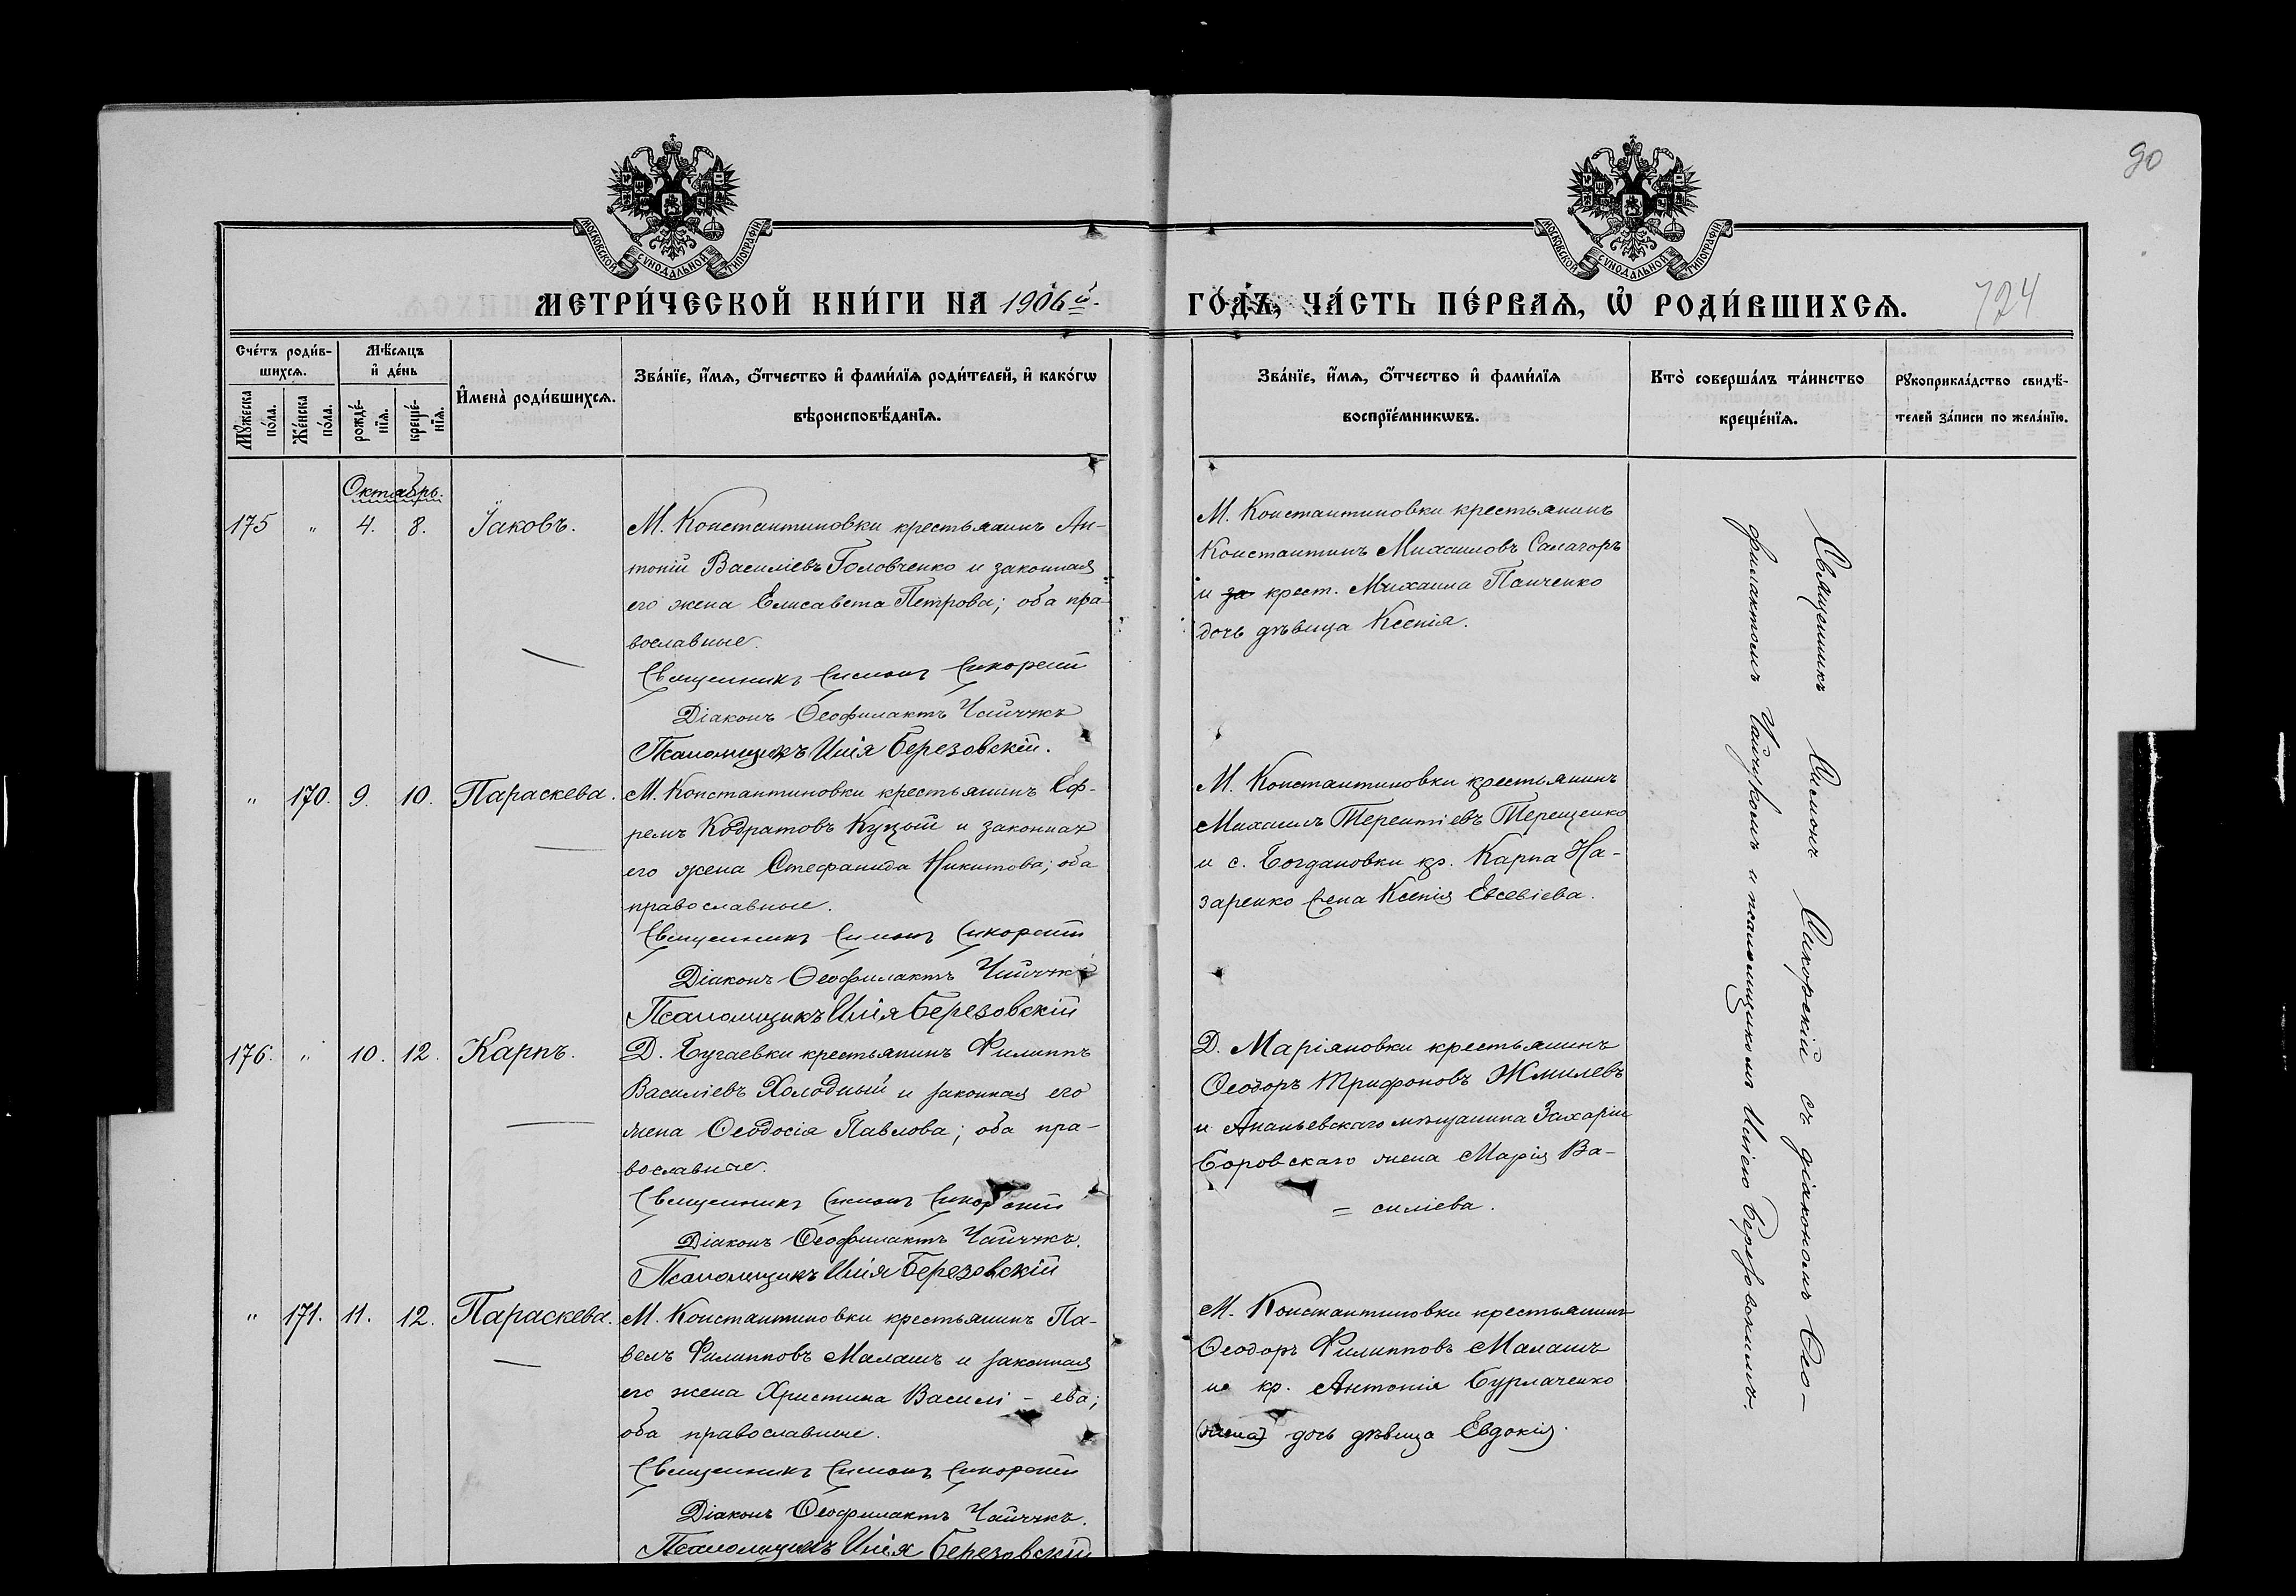 90
МОСКОВСКОЙ СѴНОДАЛЬНОЙ ТИПОГРАФІИ
МОСКОВСКОЙ СѴНОДАЛЬНОЙ ТИПОГРАФІИ
МЕТРИ́ЧЕСКОЙ КНИ́ГИ НА 1906й.
ГО́ДЪ, ЧА́СТЬ ПЕ́РВАѦ, Ѡ҆ РОДИ́ВШИХСѦ.
724
Сче́тъ роди́в-
шихсѧ.
Мꙋ́жеска по́ла.
Же́нска по́ла.
Мѣ́сѧцъ
и҆ де́нь
рожде́-
нїѧ.
креще́-
нїѧ.
И҆мена̀ роди́вшихсѧ.
Зва́нїе, и҆́мѧ, ѻ҆́тчество и҆ фами́лїѧ роди́телей, и҆ како́гѡ
вѣроисповѣ́данїѧ.
Зва́нїе, и҆́мѧ, ѻ҆́тчество и҆ фами́лїѧ
воспрїе́мникѡвъ.
Кто̀ соверша́лъ та́инство
креще́нїѧ.
Рꙋкоприкла́дство свидѣ́-
телей за́писи по жела́нїю.
Октябрь.
175 " 4. 8. Іаковъ.
М. Константиновки крестьянинъ Ан-
тоній Василіевъ Головченко и законная
его жена Елисавета Петрова; оба пра-
вославные.
Священникъ Симонъ Сикорскій
Діаконъ Ѳеофилактъ Чайчукъ
Псаломщикъ Илія Березовскій.
М. Константиновки крестьянинъ
Константинъ Михаиловъ Салагоръ
и за крест. Михаила Панченко
дочь дѣвица Ксенія.
" 170. 9. 10. Параскева.
М. Константиновки крестьянинъ Еф-
ремъ Кодратовъ Куцый и законная
его жена Стефанида Никитова; оба
православные.
Священникъ Симонъ Сикорскій
Діаконъ Ѳеофилактъ Чайчукъ
Псаломщикъ Илія Березовскій
М. Константиновки крестьянинъ
Михаилъ Терентіевъ Терещенко
и с. Богдановки кр. Карпа На-
заренко жена Ксенія Евсевіева.
176. " 10. 12. Карпъ.
Д. Бугаевки крестьянинъ Филиппъ
Василіевъ Холодный и законная его
жена Ѳеодосія Павлова; оба пра-
вославные.
Священникъ Симонъ Сикорскій
Діаконъ Ѳеофилактъ Чайчукъ.
Псаломщикъ Илія Березовскій
Д. Маріяновки крестьянинъ
Ѳеодоръ Трифоновъ Жмилевъ
и Ананьевскаго мѣщанина Захаріи
Боровскаго жена Марія Ва-
= силіева.
" 171. 11. 12. Параскева.
М. Константиновки крестьянинъ Па-
велъ Филипповъ Малашъ и законная
его жена Христина Василі - ева;
оба православные.
Священникъ Симонъ Сикорскій
Діаконъ Ѳеофилактъ Чайчукъ.
Псаломщикъ Илія Березовскій
М. Константиновки крестьянинъ
Ѳеодоръ Филипповъ Малашъ
и кр. Антонія Бурлаченко
(жена) дочь дѣвица Евдокія.
Священникъ Симонъ Сикорскій съ діакономъ Ѳео-
филактомъ Чайчукомъ и псаломщикомъ Иліею Березовскимъ.